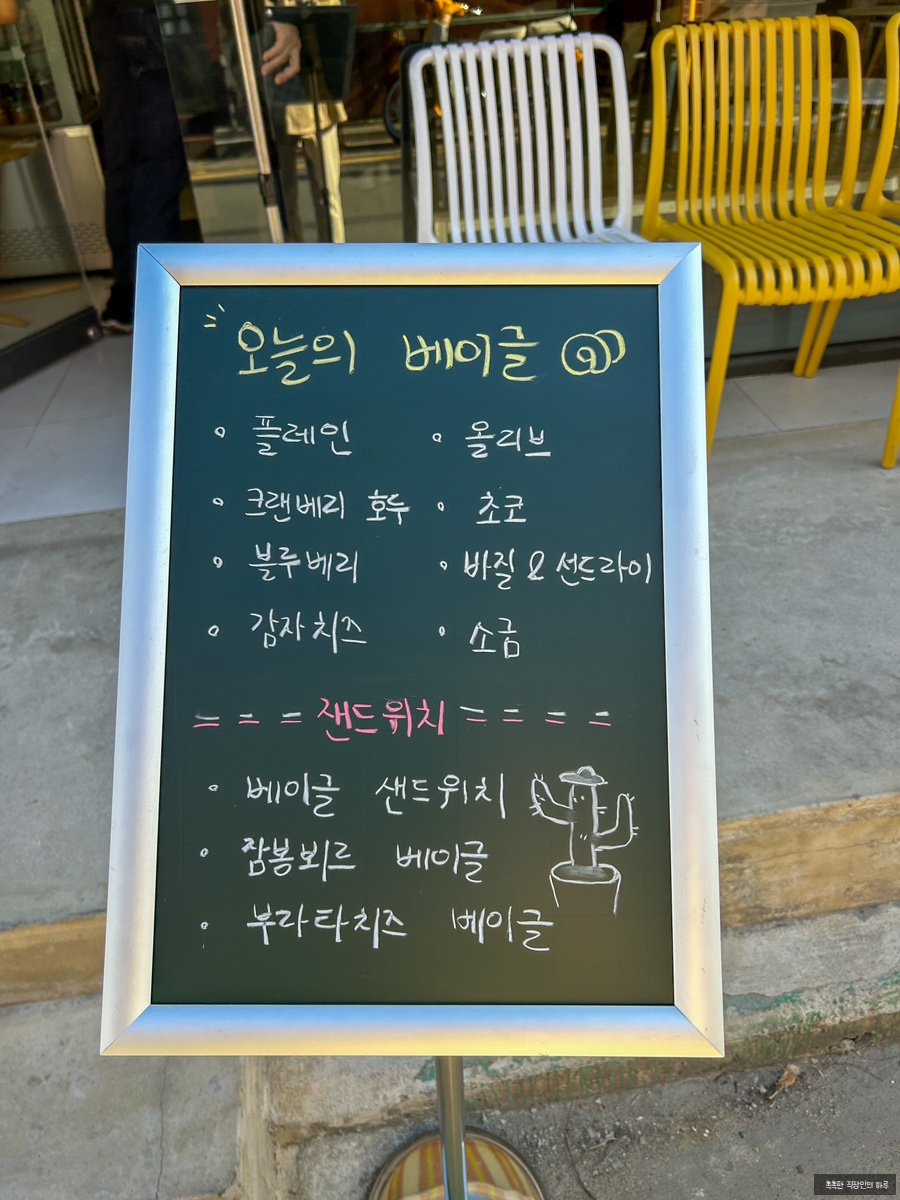 오늘의 베이글
플레인
올리브
크랜베리 호두
초코
블루베리
바질 & 선드라이
감자치즈
소금
= = = 잰드위치 = = = =
베이글 샌드위치
잠봉뵈르 베이글
부라타치즈 베이글
촉촉한 직장인의 하루